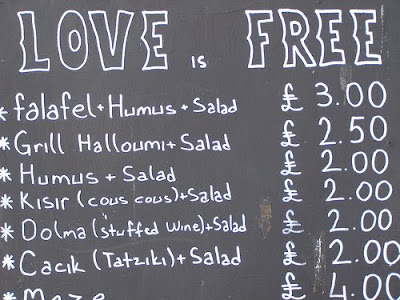 LOVE IS FREE
*falafel+Humus+Salad £ 3.00
*Grill Halloumi+Salad £ 2.50
*Humus + Salad £ 2.00
*Kisir (cous cous)+Salad £ 2.00
*Dolma (stuffed wine)+Salad £ 2.00
*Cacik (Tatziki)+ Salad £ 2.00
*Meze £ 4.00